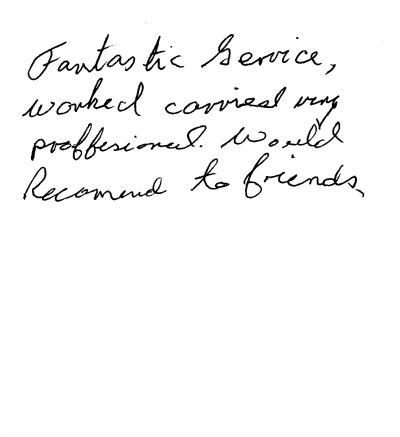 Fantastic Service,
worked carried very
proffesional. Would
Recomend to friends.